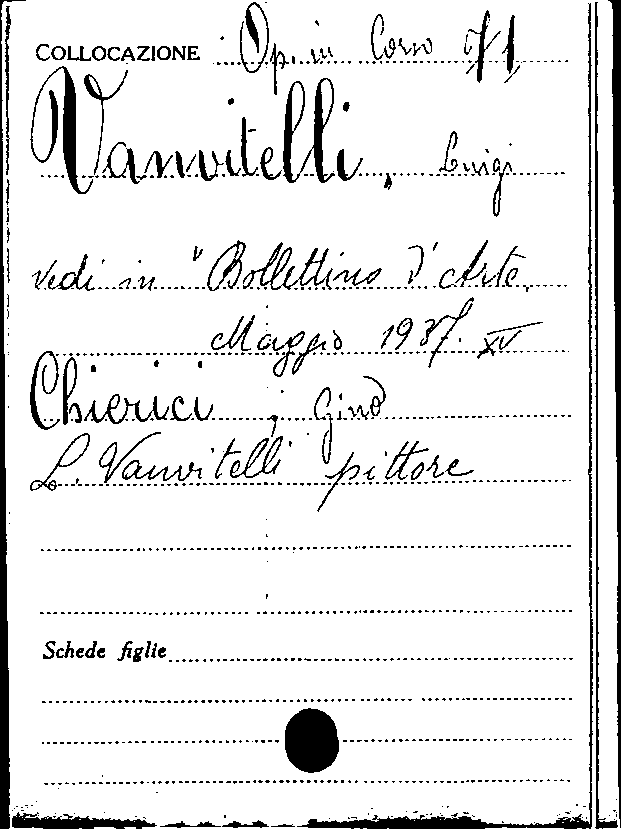 COLLOCAZIONE Op. in Corso 71
Vanvitelli, Luigi
vedi in "Bollettino d'Arte.
Maggio 1937. XV
Chierici, Gino
L. Vanvitelli pittore
Schede figlie